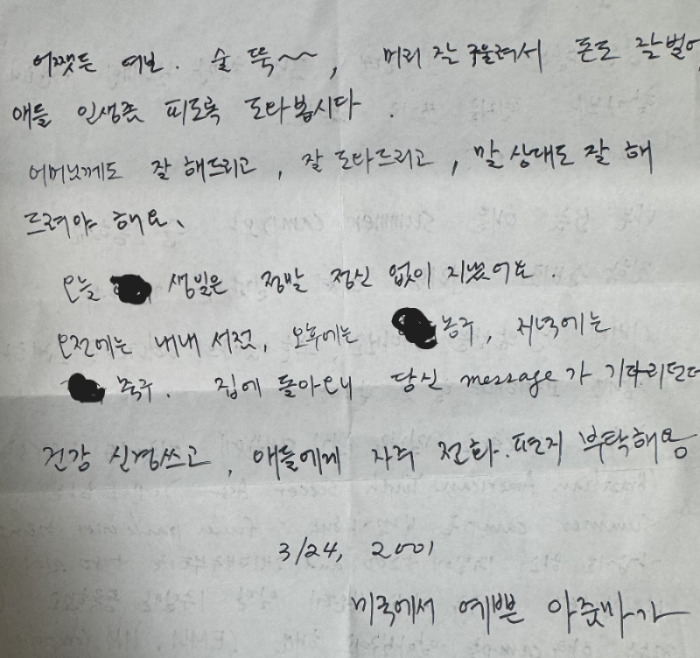 어쨌든 여보. 술 뚝~~, 머리 잘 굴려서 돈도 잘 벌어
애들 인생쫌 피도록 도타봅시다.
어머님께도 잘 해드리고, 잘 도타드리고, 말 상대도 잘 해
드려야 해요.
오늘 생일은 정말 정신 없이 지냈어요.
오전에는 내내 서점, 오후에는 농구, 저녁에는
축구. 집에 돌아오니 당신 message가 기다리던데
건강 신경쓰고, 애들에게 자주 전화. 편지 부탁해용
3/24, 2001
미국에서 예쁜 아줌마가